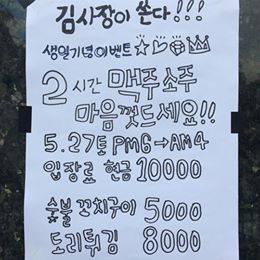 김사장이 쏜다!!!
생일기념이벤트
2시간 맥주소주
마음껏드세요!!
5.27토 PM6→AM4
입장료 현금 10000
숯불꼬치구이 5000
도리튀김 8000